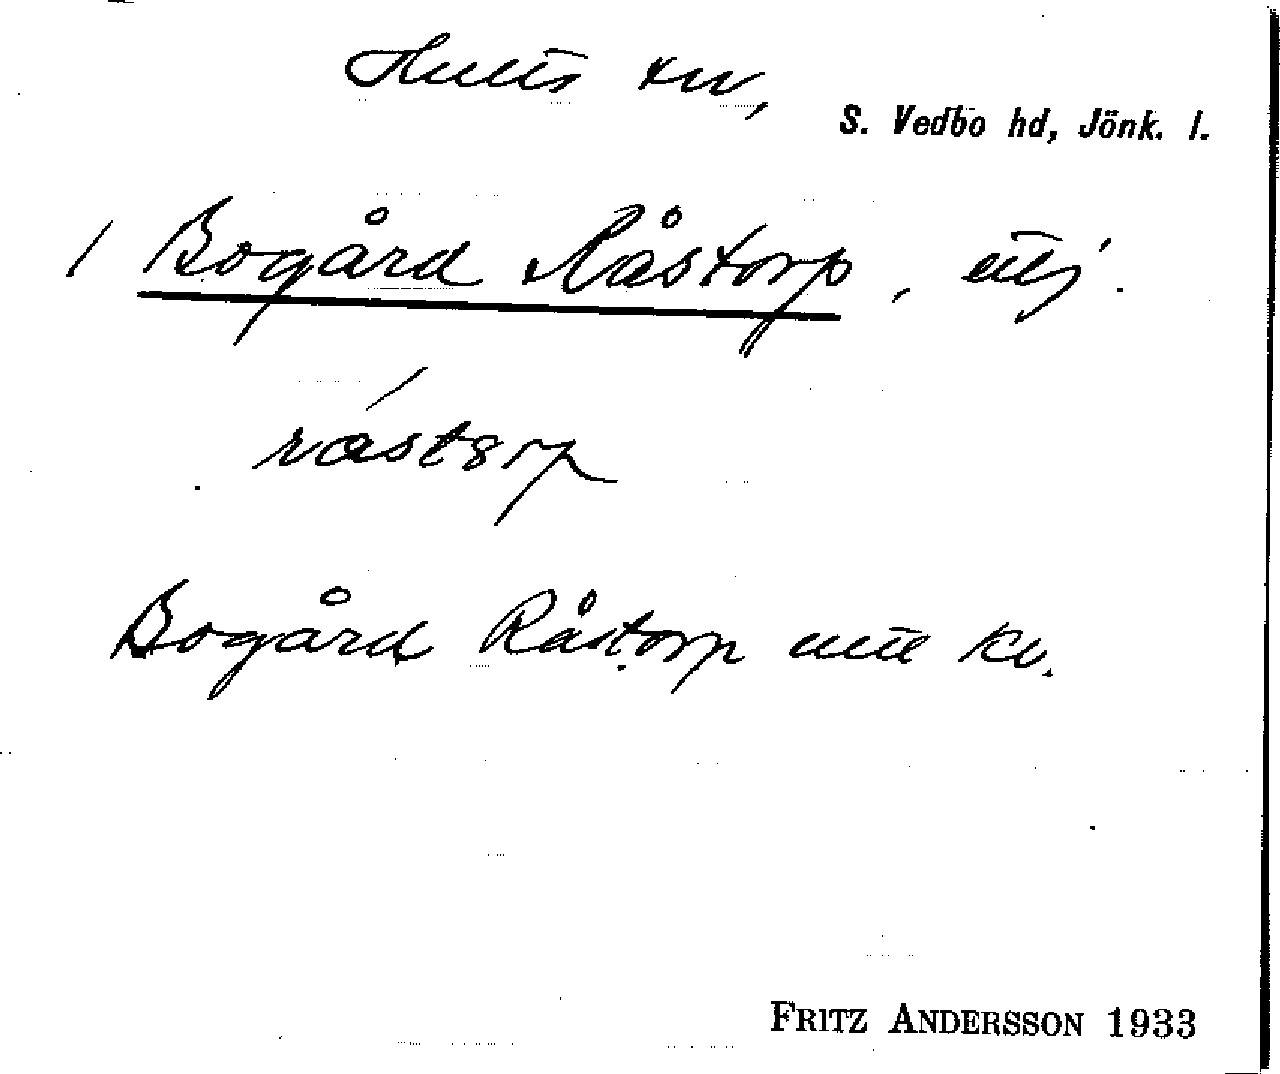 Hults sn,
S. Vedbo hd, Jönk. l.
/ Bogård Råstorp,
råstorp
Bogård Råstorp
FRITZ ANDERSSON 1933